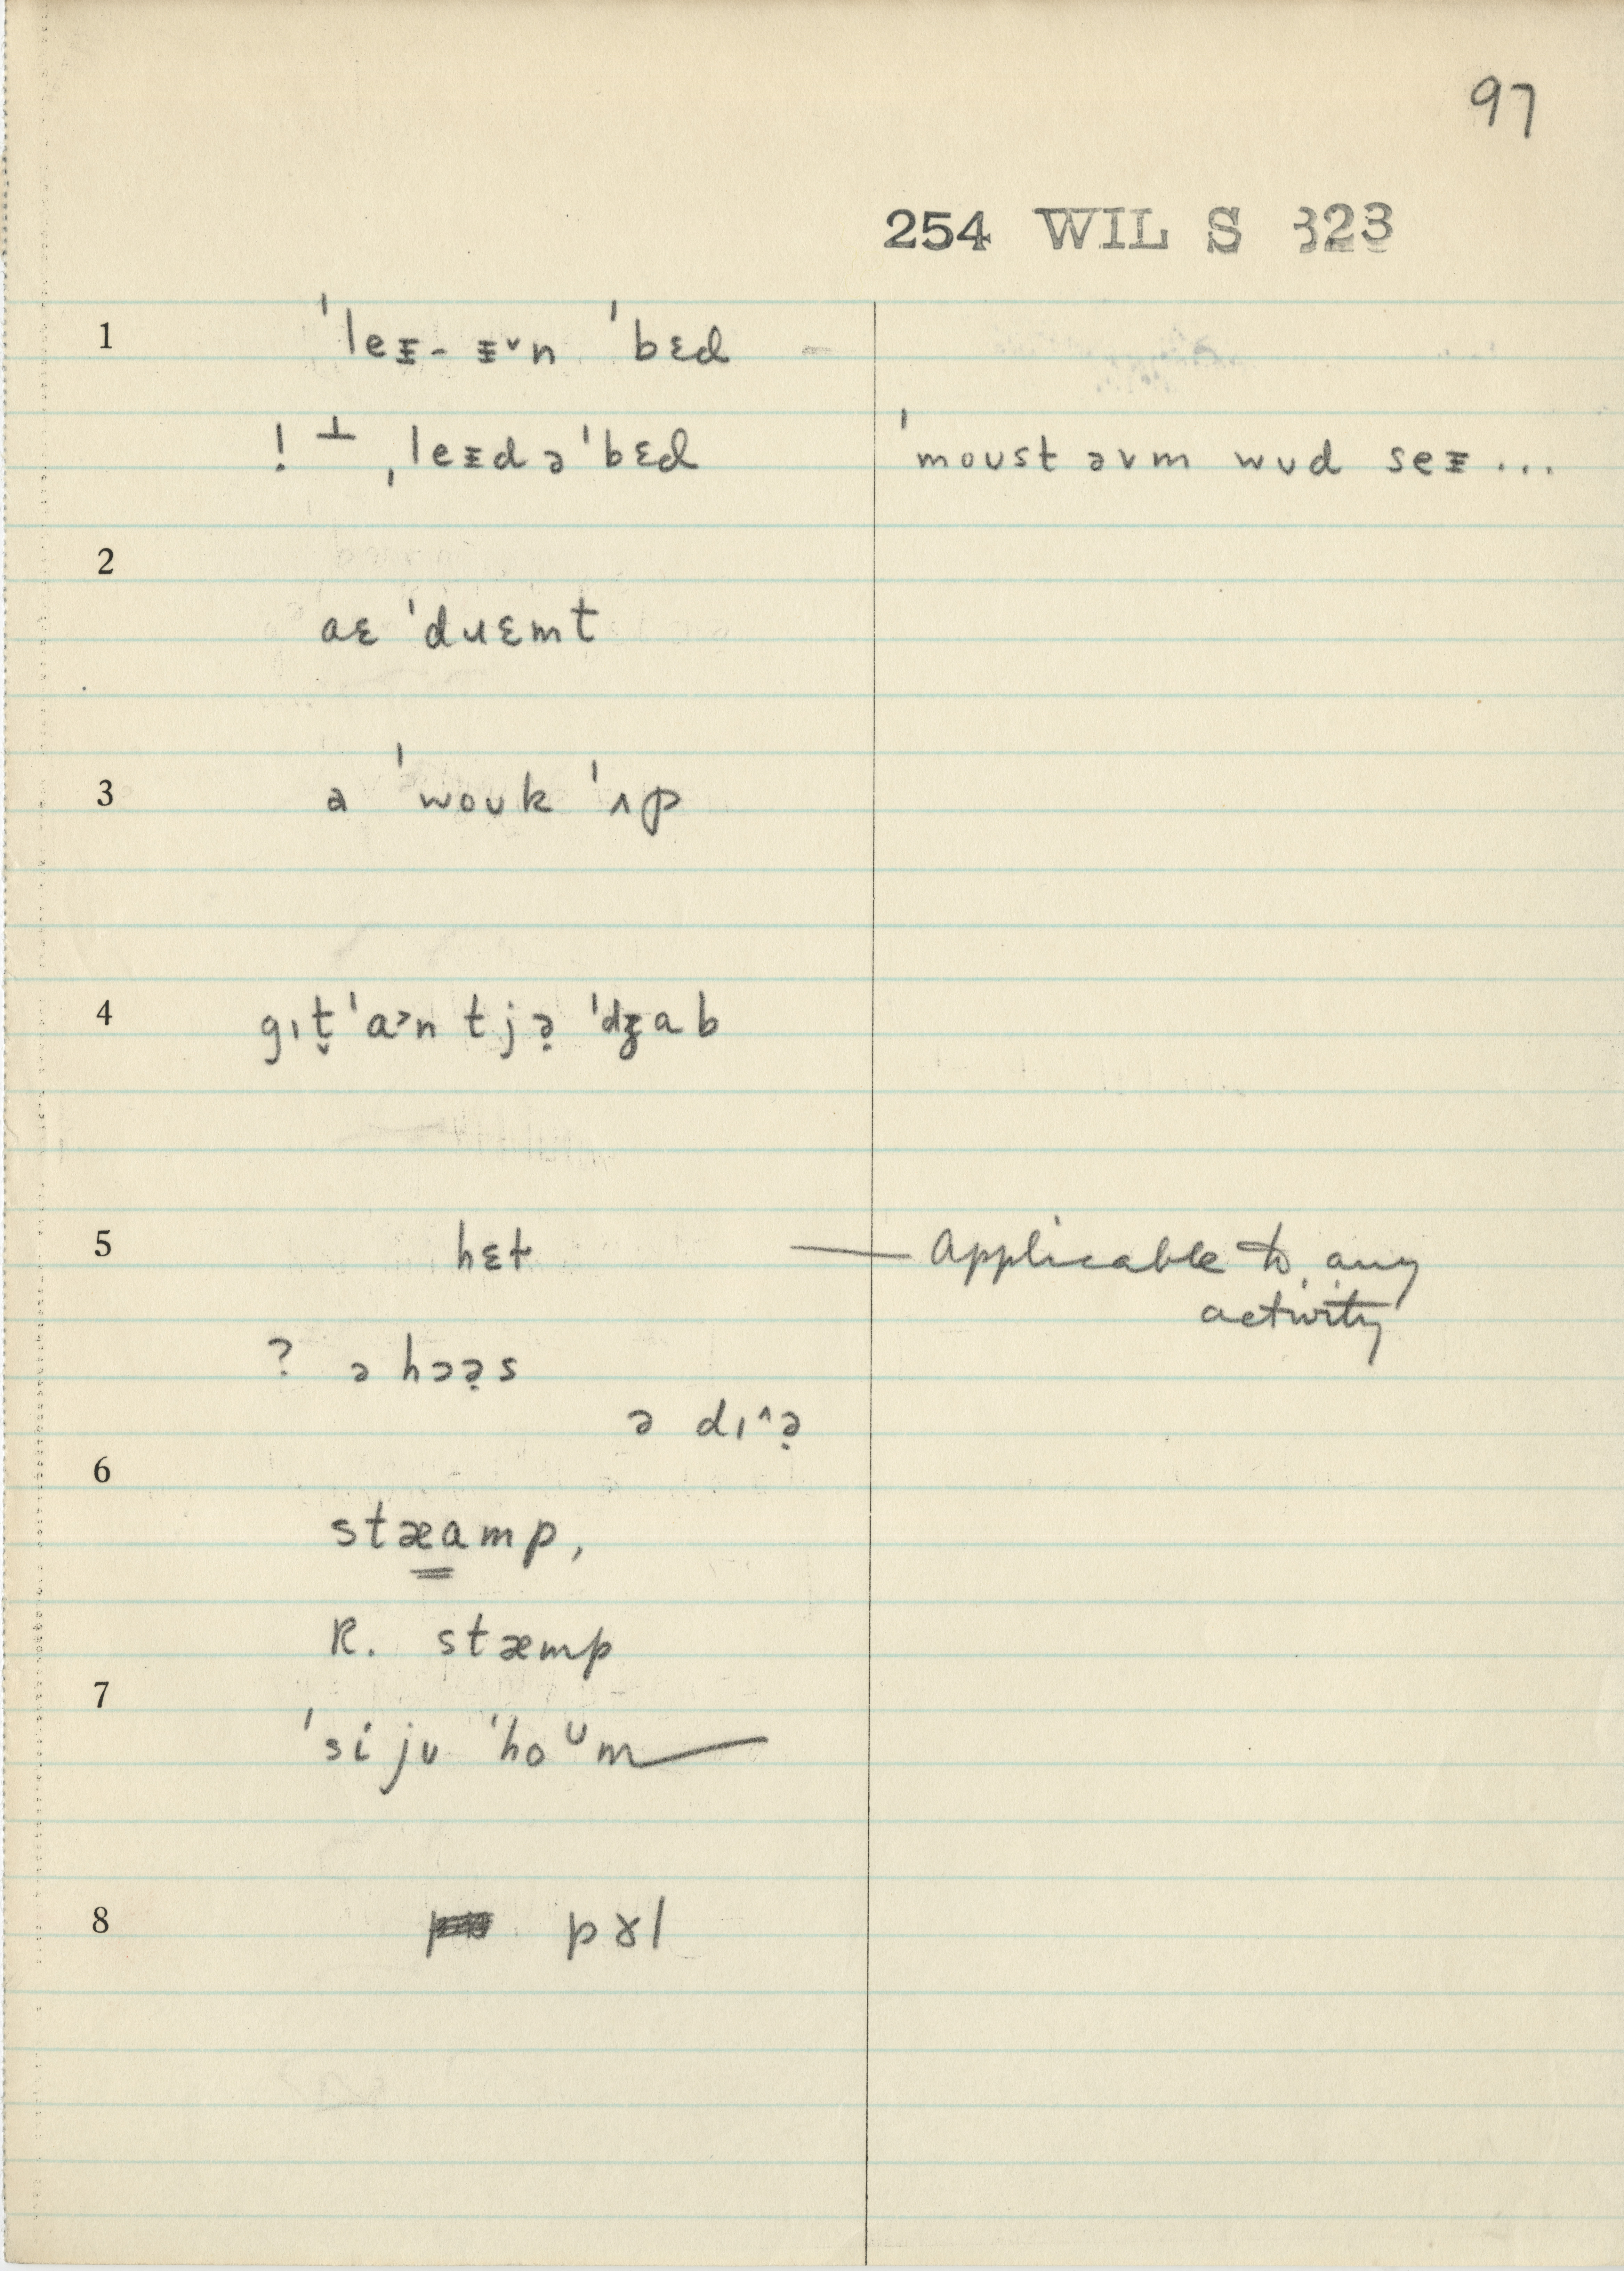 97
254 WIL S 323
1 ˈleᵻ- ᵻ˅n ˈbɛd
! ⊥ ˌleᵻd ə ˈbɛd ˈmoust əvm wud seᵻ...
2
aɛ ˈduɛmt
3 ə ˈwouk ˈʌp
4 gɪt̬ ˈa˃n tjə̣ ˈdʒab
5 hɛt — Applicable to any
activity
? ə hɔə̣s
ə dɪ^ə̣
6
stæamp,
R. stæmp
7
ˈsi ju ˈhoᵁm
8 pɤl